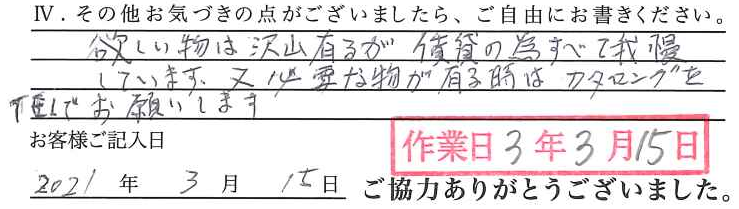 Ⅳ．その他お気づきの点がございましたら、ご自由にお書きください。
欲しい物は沢山有るが賃貸の為すべて我慢
しています。又必要な物が有る時はカタロングを
でお願いします
お客様ご記入日
作業日3年3月15日
2021年3月15日 ご協力ありがとうございました。